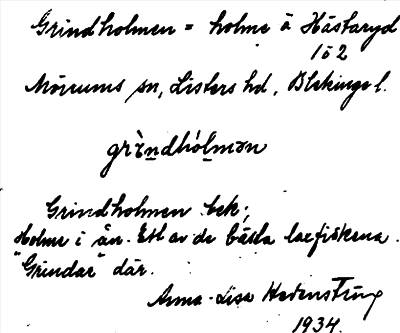 Grindholmen = holme å Hästaryd
1 o 2
Mörrums sn, Listers hd, Blekinge l.
grìndhólmən
Grindholmen bek;
Holme i ån. Ett av de bästa laxfiskena.
"Grindar" där.
Anna-Lisa Hedenstrüg
1934.